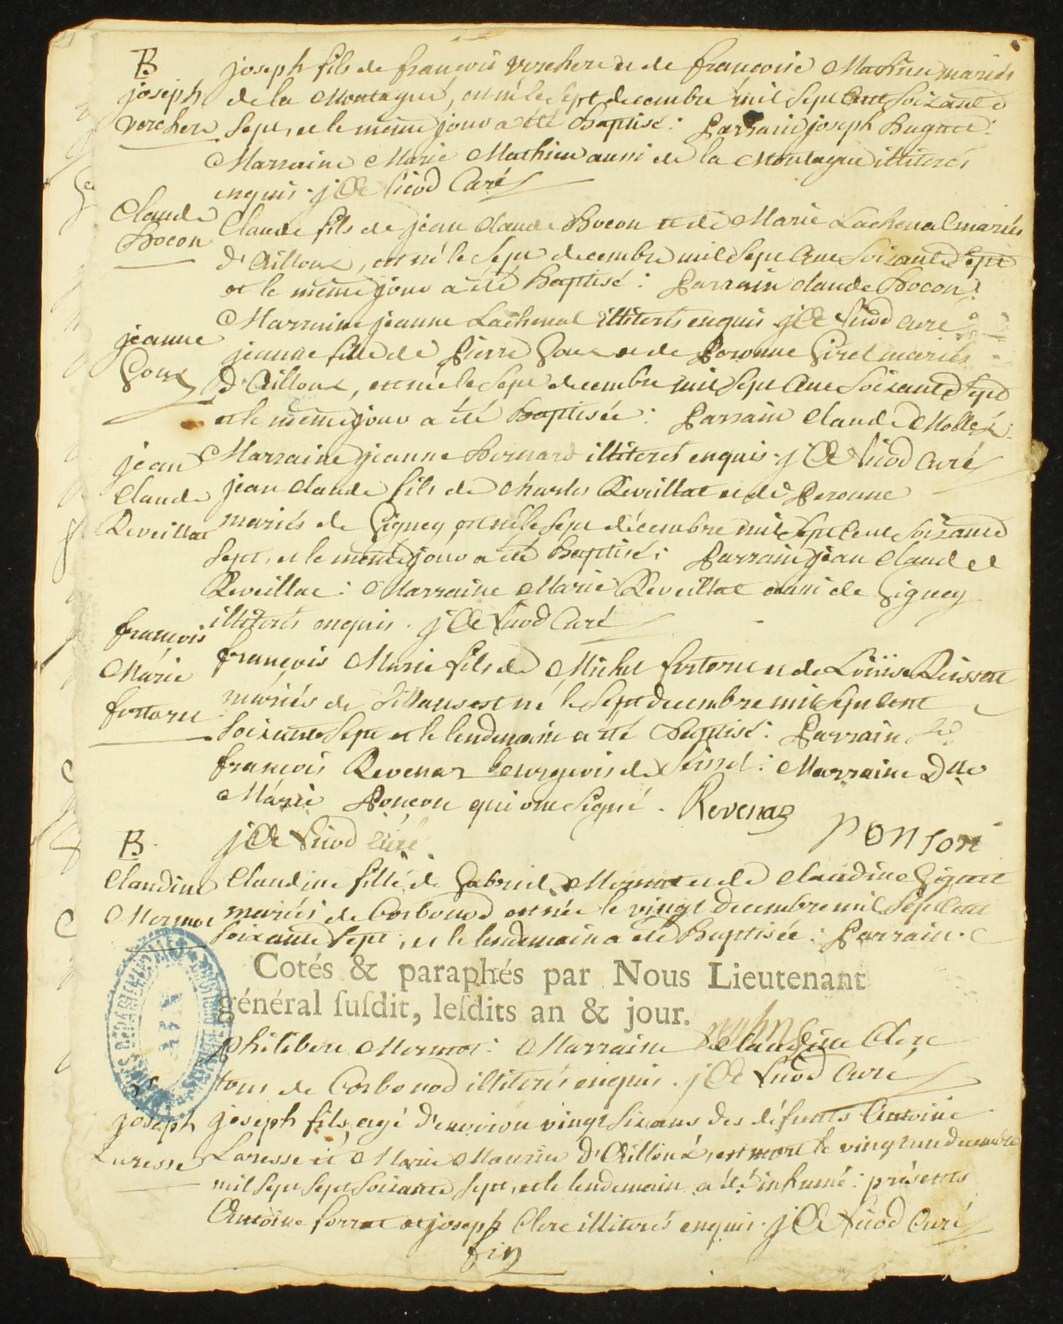 B
joseph
verchere
joseph fils de françois verchere et de françoise Mathieu mariés
de la Montagne, est né le sept decembre mil sept cent soixante
sept, et le même jour a été Baptisé: Parrain joseph
Marraine Marie Mathieu aussi de la Montagne illiterés
enquis. Curé
Claude
Bocon
Claude fils de jean claude Bocon et de Marie Lachenal mariés
d'Ailloux, est né le sept decembre mil sept cent soixante sept
et le même jour a été Baptisé: Parrain claude Bocon:
Marraine jeanne Lachenal illiterés enquis Curé
jeanne
Goux
jeanne fille de Pierre Goux et de Peronne Giret mariés
d'Ailloux, est née le sept decembre mil sept cent soixante sept
et le même jour a été Baptisée: Parrain claude
Marraine jeanne Bernard illiterés enquis. Curé
jean
Claude
Reveillat
jean claude fils de charles Reveillat et de Peronne
mariés de Gignez est né le sept décembre mil sept cent soixante
sept, et le même jour a été Baptisé: Parrain jean claude
Reveillat: Marraine Marie Reveillat aussi de Gignez
illiterés enquis. Curé
françois
Marie
françois Marie fils de Michel et de Loüise
mariés de est né le sept decembre mil sept cent
soixante sept et le lendemain a été Baptisé: Parrain
françois Revenaz Bourgeois de Seissel: Marraine Dlle
Marie Poncon qui ont signé. Revenaz
ponson
B.
Curé
Claudine
Mermet
Claudine fille de Gabriel Mermet et de claudine
mariés de Corbonod est née le vingt decembre mil sept cent
soixante sept, et le lendemain a été Baptisée: Parrain
Cotés & paraphés par Nous Lieutenant
général susdit, lesdits an & jour.
philibert Mermet: Marraine claudine Clerc
tous de Corbonod illiterés enquis. Curé
joseph
Laresse
joseph fils agé d'environ vingt six ans des défunts Antoine
Laresse et Marie d'Ailloux, est mort le vingt un decembre
mil sept sept soixante sept, et le lendemain a été inhumé: présents
Antoine forrat et joseph Clerc illiterés enquis. Curé
fin